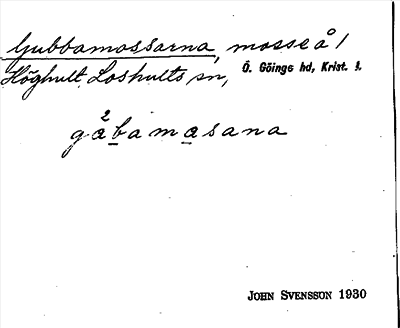 Gubbamossarna, mosse å /
Höghult, Loshults sn, Ö. Göinge hd, Krist. l.
2
gåbamasana
JOHN SVENSSON 1930